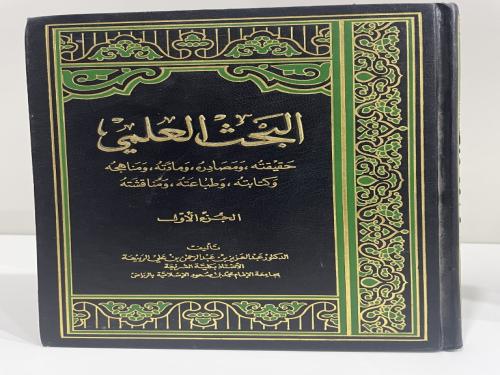 البحث العلمي
حقيقته، ومصادره، ومادته، ومناهجه
وكتابته، وطباعته، ومناقشته
الجزء الأول
تأليف
الدكتور عبد العزيز بن عبد الرحمن بن علي الربيعة
الأستاذ بكلية الشريعة
بجامعة الإمام محمد بن سعود الإسلامية بالرياض